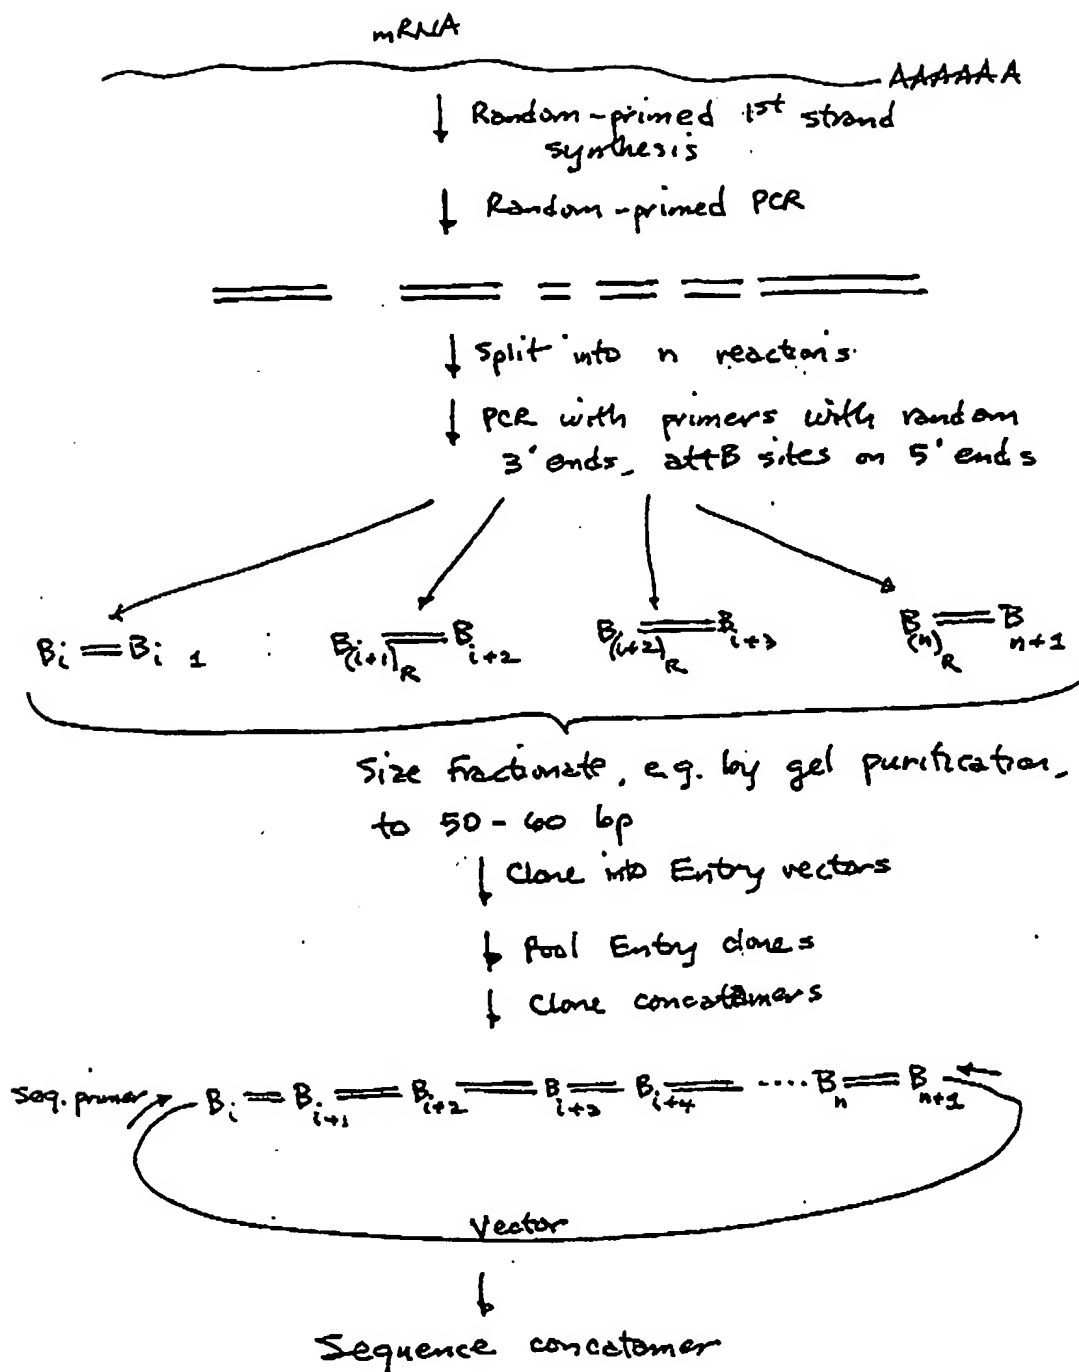 mRNA
AAAAAA
Random-primed 1st strand
synthesis
Random-primed PCR
Split into n reactions.
PCR with primers with random
3' ends, attB sites on 5' ends
Bi Bi 1 B(i+1)R Bi+2 B(i+2)R Bi+3 B(n)R Bn+1
Size fractionate, e.g. by gel purification,
to 50-60 bp
Clone into Entry vectors
Pool Entry clones
Clone concatamers
Seq. primer Bi Bi+1 Bi+2 Bi+3 Bi+4 .... Bn Bn+1
Vector
Sequence concatomer